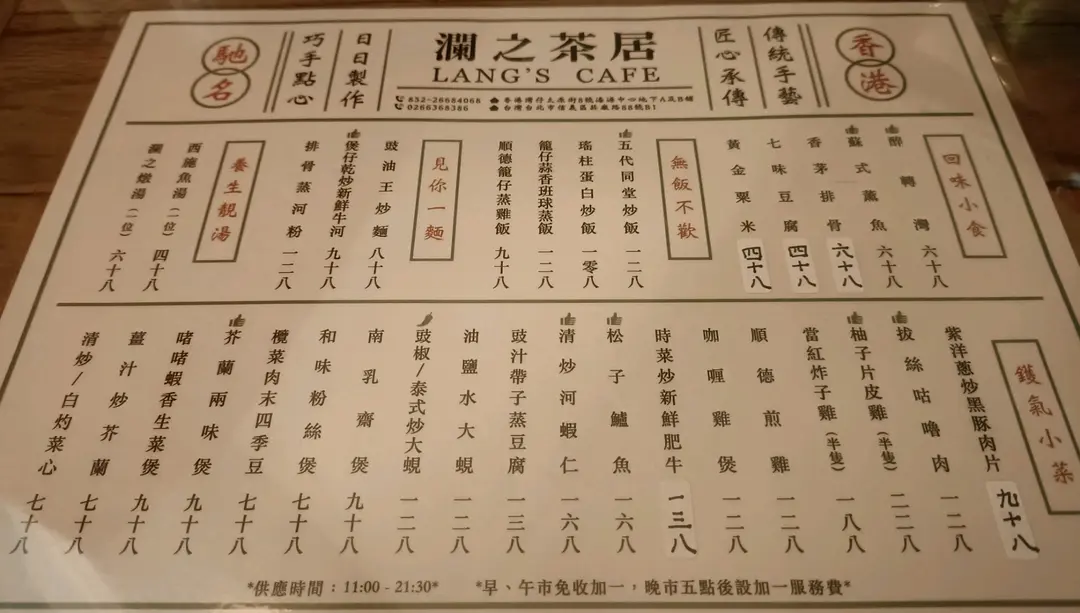 香港
馳名
傳統手藝
匠心承傳
瀾之茶居
LANG'S CAFE
852-26684068
0266368386
日日製作
巧手點心
回味小食
醉轉灣 六十八
蘇式薰魚 六十八
香茅排骨 六十八
七味豆腐 四十八
黃金粟米 四十八
無飯不歡
五代同堂炒飯 一二八
瑤柱蛋白炒飯 一零八
龍仔蒜香班球蒸飯 一二八
順德龍仔蒸雞飯 九十八
見你一麵
豉油王炒麵 八十八
煲仔乾炒新鮮牛河 九十八
排骨蒸河粉 一二八
養生靚湯
西施魚湯(一位) 四十八
瀾之燉湯(一位) 六十八
鑊氣小菜
紫洋蔥炒黑豚肉片 九十八
拔絲咕嚕肉 一二八
柚子片皮雞(半隻) 二二八
當紅炸子雞(半隻) 一八八
順德煎雞 一二八
咖喱雞煲 一二八
時菜炒新鮮肥牛 一三八
松子鱸魚 一六八
清炒河蝦仁 一六八
豉汁帶子蒸豆腐 一三八
油鹽水大蜆 一二八
豉椒/泰式炒大蜆 一二八
南乳齋煲 九十八
和味粉絲煲 七十八
欖菜肉末四季豆 七十八
芥蘭兩味煲 九十八
啫啫蝦香生菜煲 九十八
薑汁炒芥蘭 七十八
清炒/白灼菜心 七十八
*供應時間：11:00 - 21:30*
*早、午市免收加一，晚市五點後設加一服務費*